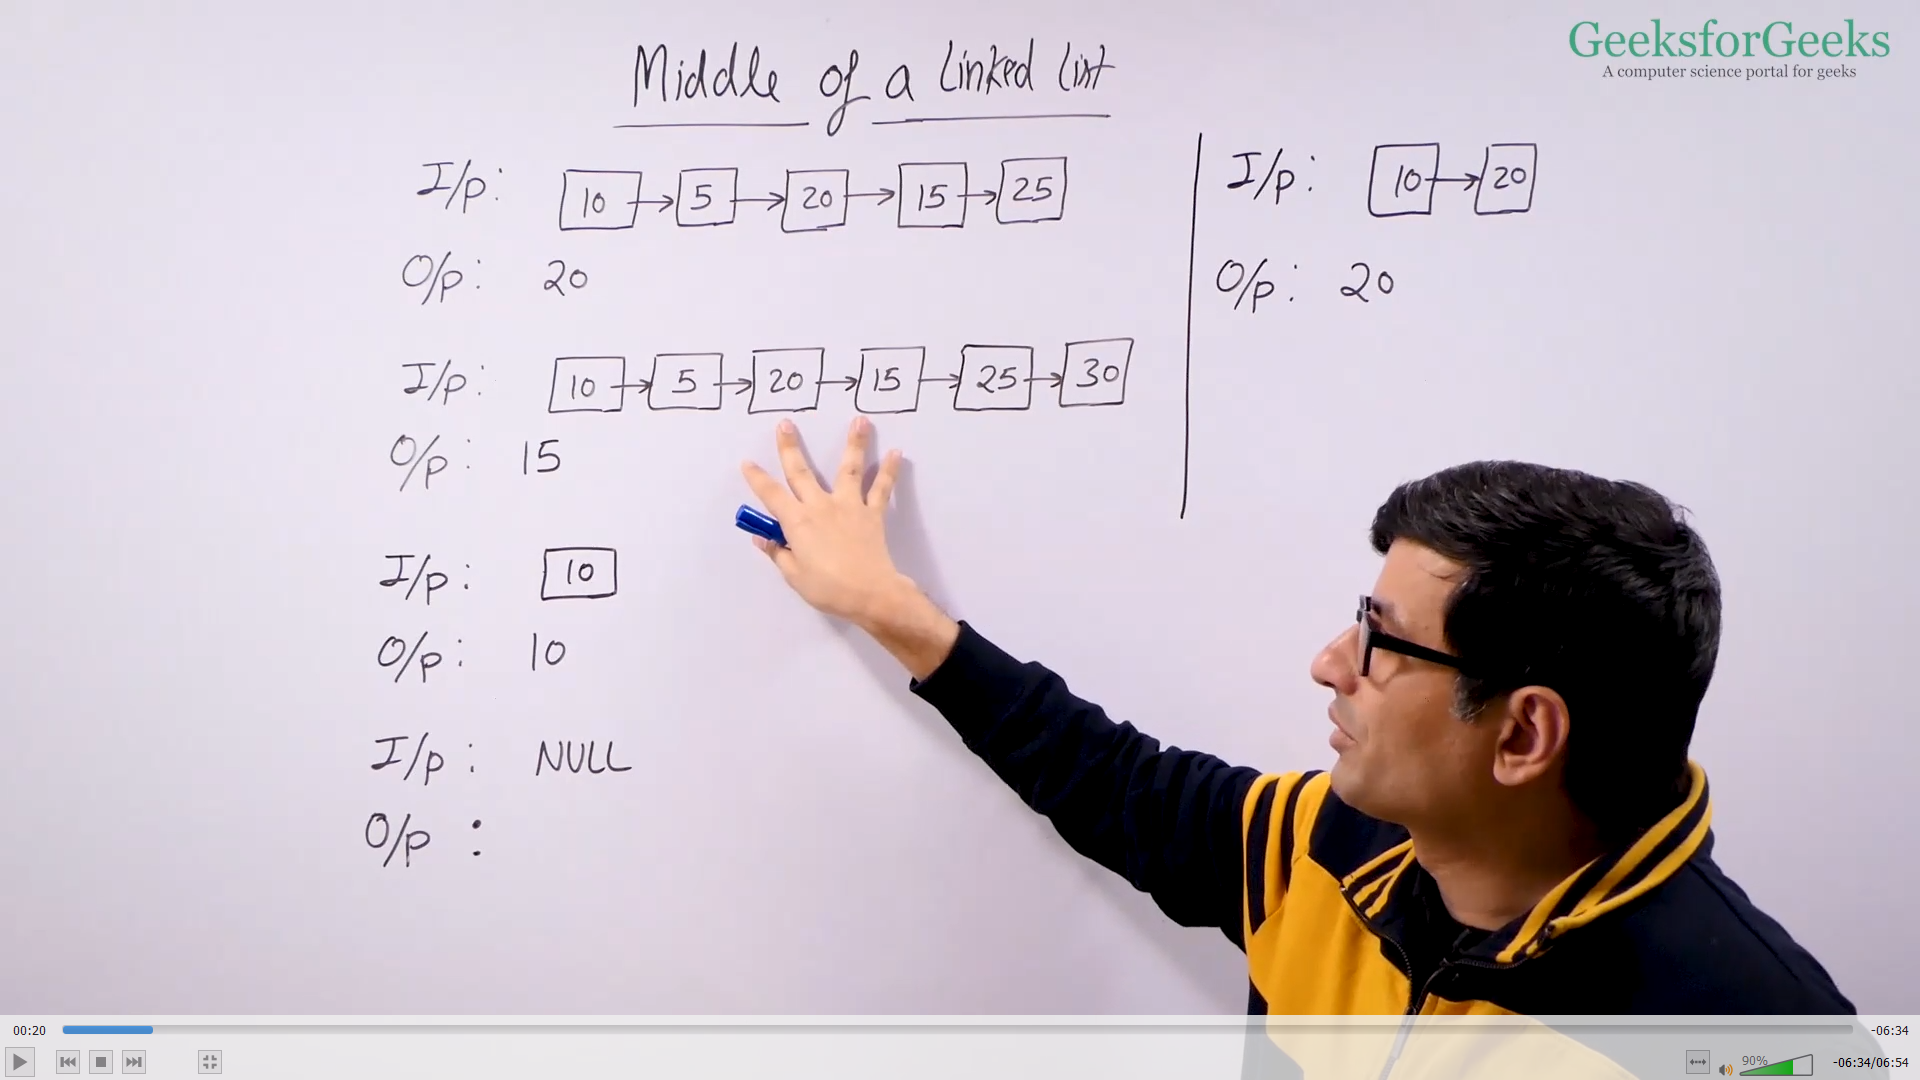 GeeksforGeeks
A computer science portal for geeks
Middle of a Linked List
I/p: 10 5 20 15 25
O/p: 20
I/p: 10 5 20 15 25 30
O/p: 15
I/p: 10
O/p: 10
I/p: NULL
O/p :
I/p: 10 20
O/p: 20
00:20
-06:34
90%
-06:34/06:54